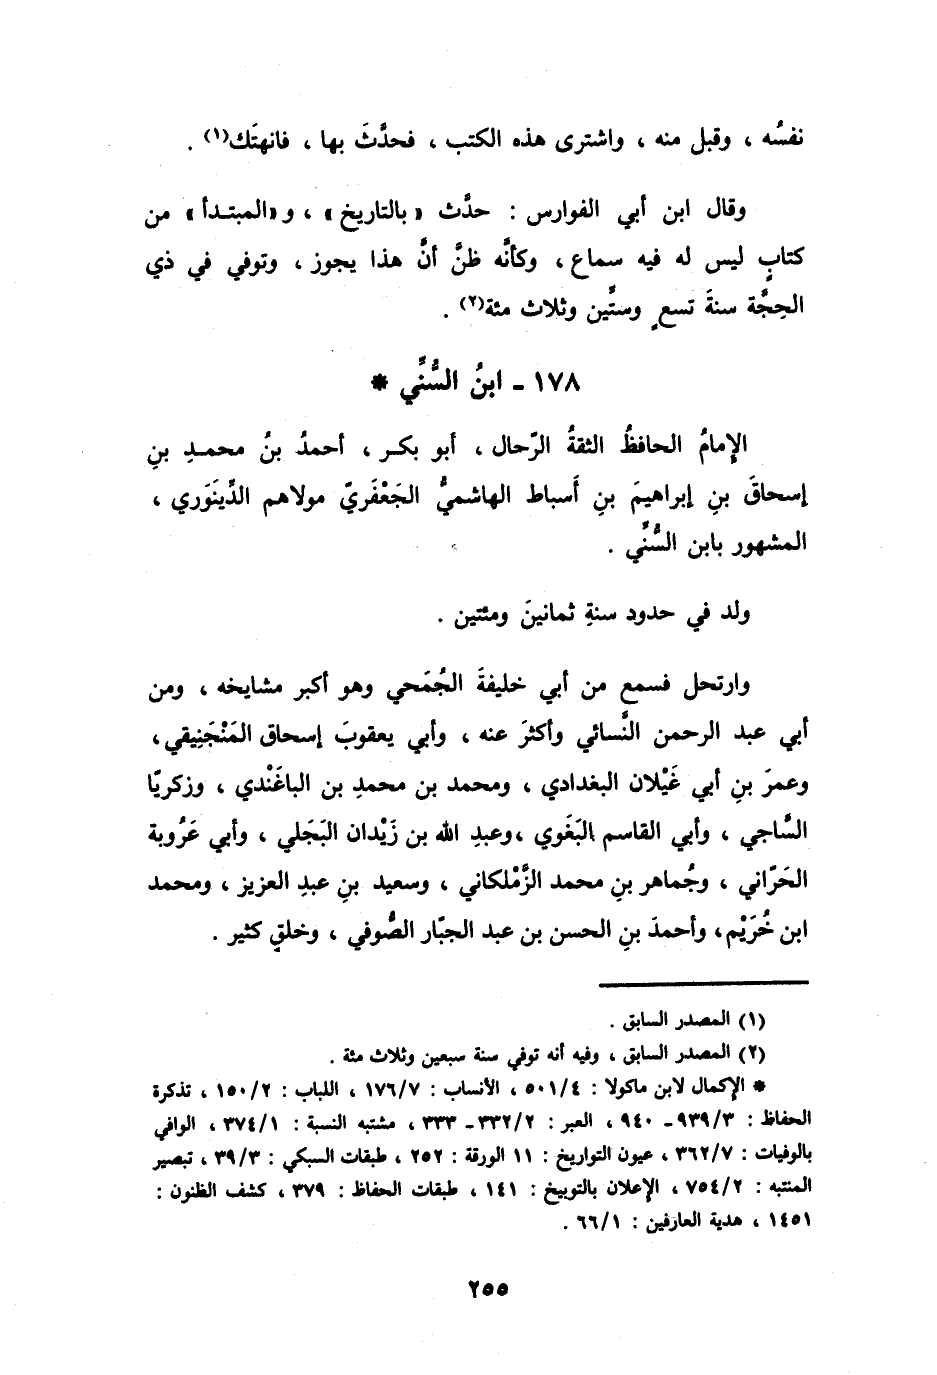 نفسُه ، وقبل منه ، واشترى هذه الكتب ، فحدَّثَ بها ، فانهتَك(١) .
وقال ابن أبي الفوارس : حدَّث « بالتاريخ » ، و «المبتدأ » من
كتابٍ ليس له فيه سماع ، وكأنَّه ظنَّ أنَّ هذا يجوز ، وتوفي في ذي
الحِجَّة سنةَ تسعٍ وستِّين وثلاث مئة(٢) .
١٧٨ - ابنُ السُّنِّي *
الإمامُ الحافظُ الثقةُ الرّحال ، أبو بكر ، أحمدُ بنُ محمدِ بنِ
إسحاقَ بنِ إبراهيمَ بنِ أَسباط الهاشميُّ الجَعْفَريّ مولاهم الدِّينَوري ،
المشهور بابن السُّنِّي .
ولد في حدود سنةِ ثمانينَ ومئتين .
وارتحل فسمع من أبي خليفةَ الجُمَحي وهو أكبر مشايخه ، ومن
أبي عبد الرحمن النَّسائي وأكثرَ عنه ، وأبي يعقوبَ إسحاق المَنْجَنِيقي ،
وعمرَ بنِ أبي غَيْلان البغدادي ، ومحمد بن محمدِ بن الباغَنْدي ، وزكريّا
السَّاجي ، وأبي القاسم البَغَوي ،وعبدِ الله بن زَيْدان البَجَلي ، وأبي عَرُوبة
الحَرّاني ، وجُماهر بنِ محمد الزَّمْلكاني ، وسعيد بنِ عبدِ العزيز ، ومحمد
ابن خُرَيْم، وأحمدَ بنِ الحسن بن عبد الجبّار الصُّوفي ، وخلقٍ كثير .
(١) المصدر السابق .
(٢) المصدر السابق ، وفيه أنه توفي سنة سبعين وثلاث مئة .
* الإكمال لابن ماكولا : ٥٠١/٤ ، الأنساب : ١٧٦/٧ ، اللباب : ١٥٠/٢ ، تذكرة
الحفاظ : ٩٣٩/٣ - ٩٤٠ ، العبر : ٣٣٢/٢ - ٣٣٣ ، مشتبه النسبة : ٣٧٤/١ ، الوافي
بالوفيات : ٣٦٢/٧ ، عيون التواريخ : ١١ الورقة : ٢٥٢ ، طبقات السبكي : ٣٩/٣ ، تبصير
المنتبه : ٧٥٤/٢ ، الإعلان بالتوبيخ : ١٤١ ، طبقات الحفاظ : ٣٧٩ ، كشف الظنون :
١٤٥١ ، هدية العارفين : ٦٦/١ .
٢٥٥